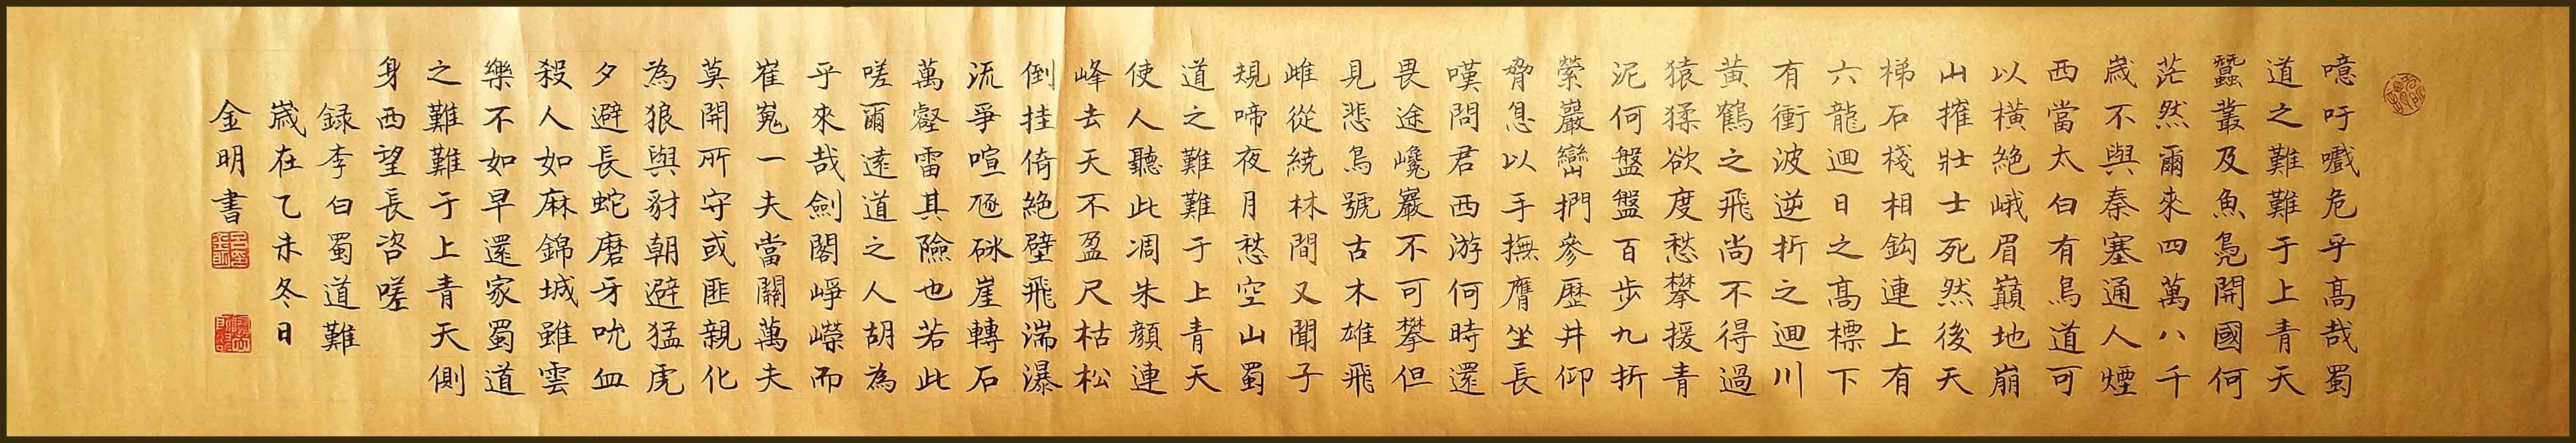 噫吁嚱危乎高哉蜀
道之難難于上青天
蠶叢及魚鳧開國何
茫然爾來四萬八千
歲不與秦塞通人煙
西當太白有鳥道可
以橫絕峨眉巔地崩
山摧壯士死然後天
梯石棧相鈎連上有
六龍迴日之高標下
有衝波逆折之迴川
黃鶴之飛尚不得過
猿猱欲度愁攀援青
泥何盤盤百步九折
縈巖巒捫參歷井仰
脅息以手撫膺坐長
嘆問君西游何時還
畏途巉巖不可攀但
見悲鳥號古木雄飛
雌從繞林間又聞子
規啼夜月愁空山蜀
道之難難于上青天
使人聽此凋朱顏連
峰去天不盈尺枯松
倒挂倚絕壁飛湍瀑
流爭喧砯崖轉石
萬壑雷其險也若此
嗟爾遠道之人胡為
乎來哉劍閣崢嶸而
崔嵬一夫當關萬夫
莫開所守或匪親化
為狼與豺朝避猛虎
夕避長蛇磨牙吮血
殺人如麻錦城雖雲
樂不如早還家蜀道
之難難于上青天側
身西望長咨嗟
録李白蜀道難
歲在乙未冬日
金明書